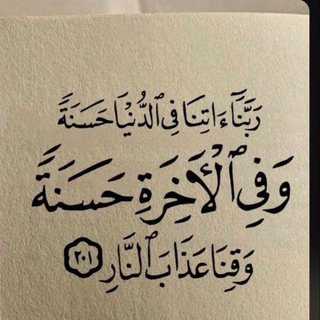 رَبَّنَآ ءَاتِنَا فِي ٱلدُّنْيَا حَسَنَةً
وَفِي ٱلْأَخِرَةِ حَسَنَةً
وَقِنَا عَذَابَ ٱلنَّارِ ٢٠١